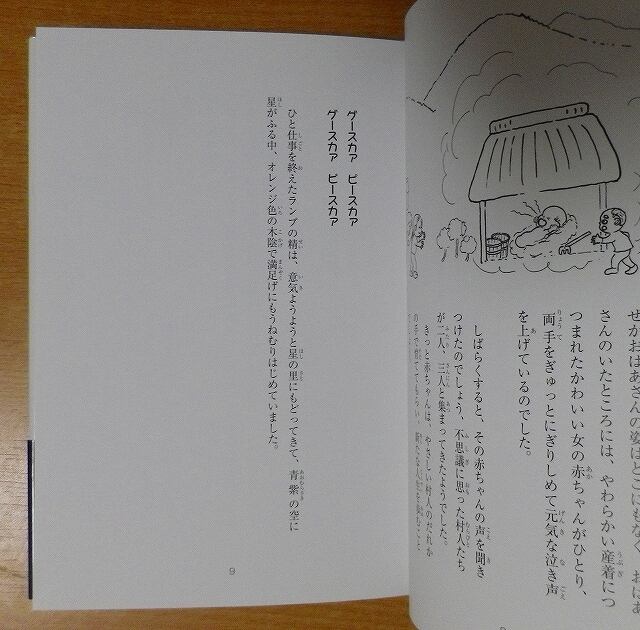 せかおばあさんの姿はどこにもなく、おばあ
さんのいたところには、やわらかい産着につ
つまれたかわいい女の赤ちゃんがひとり、
両手をぎゅっとにぎりしめて元気な泣き声
を上げているのでした。
しばらくすると、その赤ちゃんの声を聞き
つけたのでしょう、不思議に思った村人たち
が二人、三人と集まってきたようでした。
きっと赤ちゃんは、やさしい村人のだれか
の手で育ててもらい、新たな人生を歩むこと
グースカァ ピースカァ
グースカァ ピースカァ
ひと仕事を終えたランプの精は、意気ようようと星の里にもどってきて、青紫の空に
星がふる中、オレンジ色の木陰で満足げにもうねむりはじめていました。
9